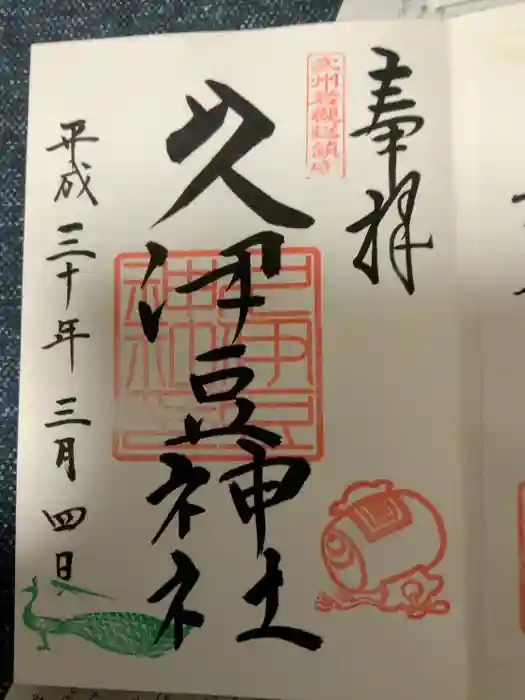 奉拝
武州岩槻総鎮守
久伊豆神社
平成三十年三月四日